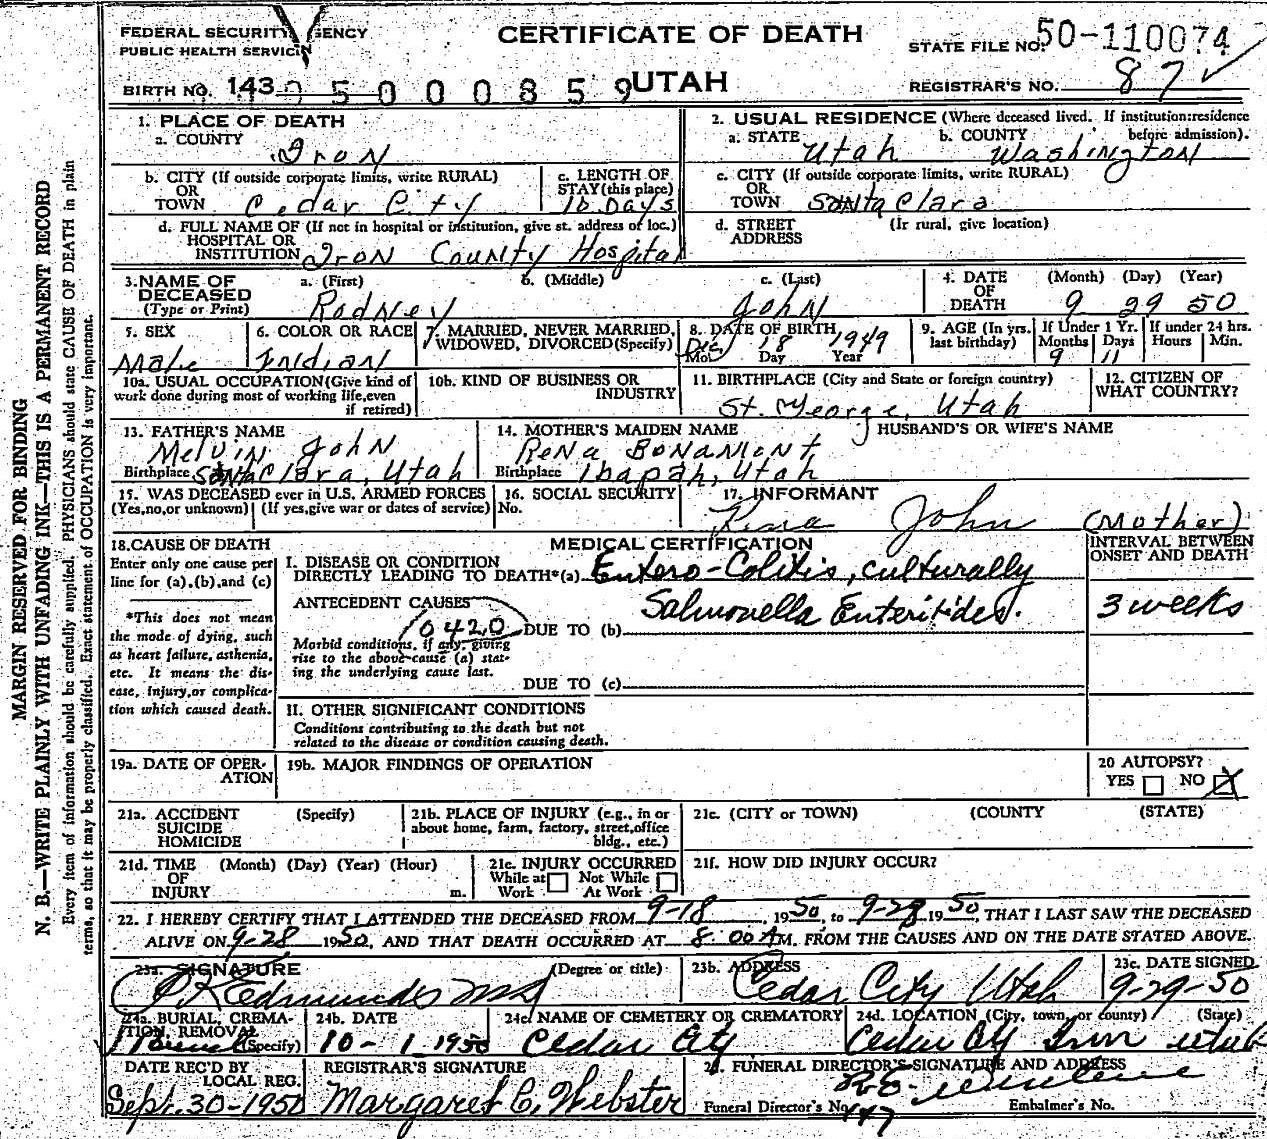 FEDERAL SECURITY AGENCY
PUBLIC HEALTH SERVICE
CERTIFICATE OF DEATH
STATE FILE NO. 50-110074
BIRTH NO. 143 05000859
UTAH
REGISTRAR'S NO. 87
1. PLACE OF DEATH
a. COUNTY Iron
2. USUAL RESIDENCE (Where deceased lived. If institution: residence before admission).
a. STATE Utah b. COUNTY Washington
b. CITY (If outside corporate limits, write RURAL) OR TOWN Cedar City
c. LENGTH OF STAY (this place) 10 Days
c. CITY (If outside corporate limits, write RURAL) OR TOWN Santa Clara
d. FULL NAME OF (If not in hospital or institution, give st. address or loc.) HOSPITAL OR INSTITUTION Iron County Hospital
d. STREET ADDRESS (Ir rural, give location)
3. NAME OF DECEASED (Type or Print) a. (First) Rodney b. (Middle) c. (Last) John
4. DATE OF DEATH (Month) (Day) (Year) 9 29 50
5. SEX Male
6. COLOR OR RACE Indian
7. MARRIED, NEVER MARRIED, WIDOWED, DIVORCED (Specify)
8. DATE OF BIRTH Dec. 18 1949 Mo. Day Year
9. AGE (In yrs. last birthday) If Under 1 Yr. Months 9 Days 11 If under 24 hrs. Hours Min.
10a. USUAL OCCUPATION (Give kind of work done during most of working life, even if retired)
10b. KIND OF BUSINESS OR INDUSTRY
11. BIRTHPLACE (City and State or foreign country) St. George, Utah
12. CITIZEN OF WHAT COUNTRY?
13. FATHER'S NAME Melvin John
Birthplace Santa Clara, Utah
14. MOTHER'S MAIDEN NAME Rena Bonamont
Birthplace Ibapah, Utah
HUSBAND'S OR WIFE'S NAME
15. WAS DECEASED ever in U.S. ARMED FORCES (Yes, no, or unknown) (If yes, give war or dates of service)
16. SOCIAL SECURITY No.
17. INFORMANT Rena John (Mother)
18. CAUSE OF DEATH
Enter only one cause per line for (a), (b), and (c)
*This does not mean the mode of dying, such as heart failure, asthenia, etc. It means the disease, injury, or complication which caused death.
MEDICAL CERTIFICATION
INTERVAL BETWEEN ONSET AND DEATH
I. DISEASE OR CONDITION DIRECTLY LEADING TO DEATH*(a) Entero-Colitis, culturally
Salmonella Enteritides. 3 weeks
ANTECEDENT CAUSES
0420 DUE TO (b)
Morbid conditions, if any, giving rise to the above cause (a) stating the underlying cause last.
DUE TO (c)
II. OTHER SIGNIFICANT CONDITIONS
Conditions contributing to the death but not related to the disease or condition causing death.
19a. DATE OF OPERATION
19b. MAJOR FINDINGS OF OPERATION
20 AUTOPSY? YES NO X
21a. ACCIDENT SUICIDE HOMICIDE (Specify)
21b. PLACE OF INJURY (e.g., in or about home, farm, factory, street, office bldg., etc.)
21c. (CITY or TOWN) (COUNTY) (STATE)
21d. TIME OF INJURY (Month) (Day) (Year) (Hour) m.
21e. INJURY OCCURRED While at Work Not While At Work
21f. HOW DID INJURY OCCUR?
22. I HEREBY CERTIFY THAT I ATTENDED THE DECEASED FROM 9-18, 1950, to 9-28, 1950, THAT I LAST SAW THE DECEASED
ALIVE ON 9-28 1950, AND THAT DEATH OCCURRED AT 8:00 A M. FROM THE CAUSES AND ON THE DATE STATED ABOVE.
23a. SIGNATURE (Degree or title) Edmunds MD
23b. ADDRESS Cedar City Utah
23c. DATE SIGNED 9-29-50
24a. BURIAL, CREMATION, REMOVAL (Specify) Burial
24b. DATE 10-1 1950
24c. NAME OF CEMETERY OR CREMATORY Cedar City
24d. LOCATION (City, town, or county) (State) Cedar City Iron Utah
DATE REC'D BY LOCAL REG. Sept. 30-1950
REGISTRAR'S SIGNATURE Margaret C. Webster
FUNERAL DIRECTOR'S SIGNATURE AND ADDRESS
Funeral Director's No. 147 Embalmer's No.
MARGIN RESERVED FOR BINDING
N. B.—WRITE PLAINLY WITH UNFADING INK—THIS IS A PERMANENT RECORD
Every item of information should be carefully supplied. PHYSICIANS should state CAUSE OF DEATH in plain
terms, so that it may be properly classified. Exact statement of OCCUPATION is very important.